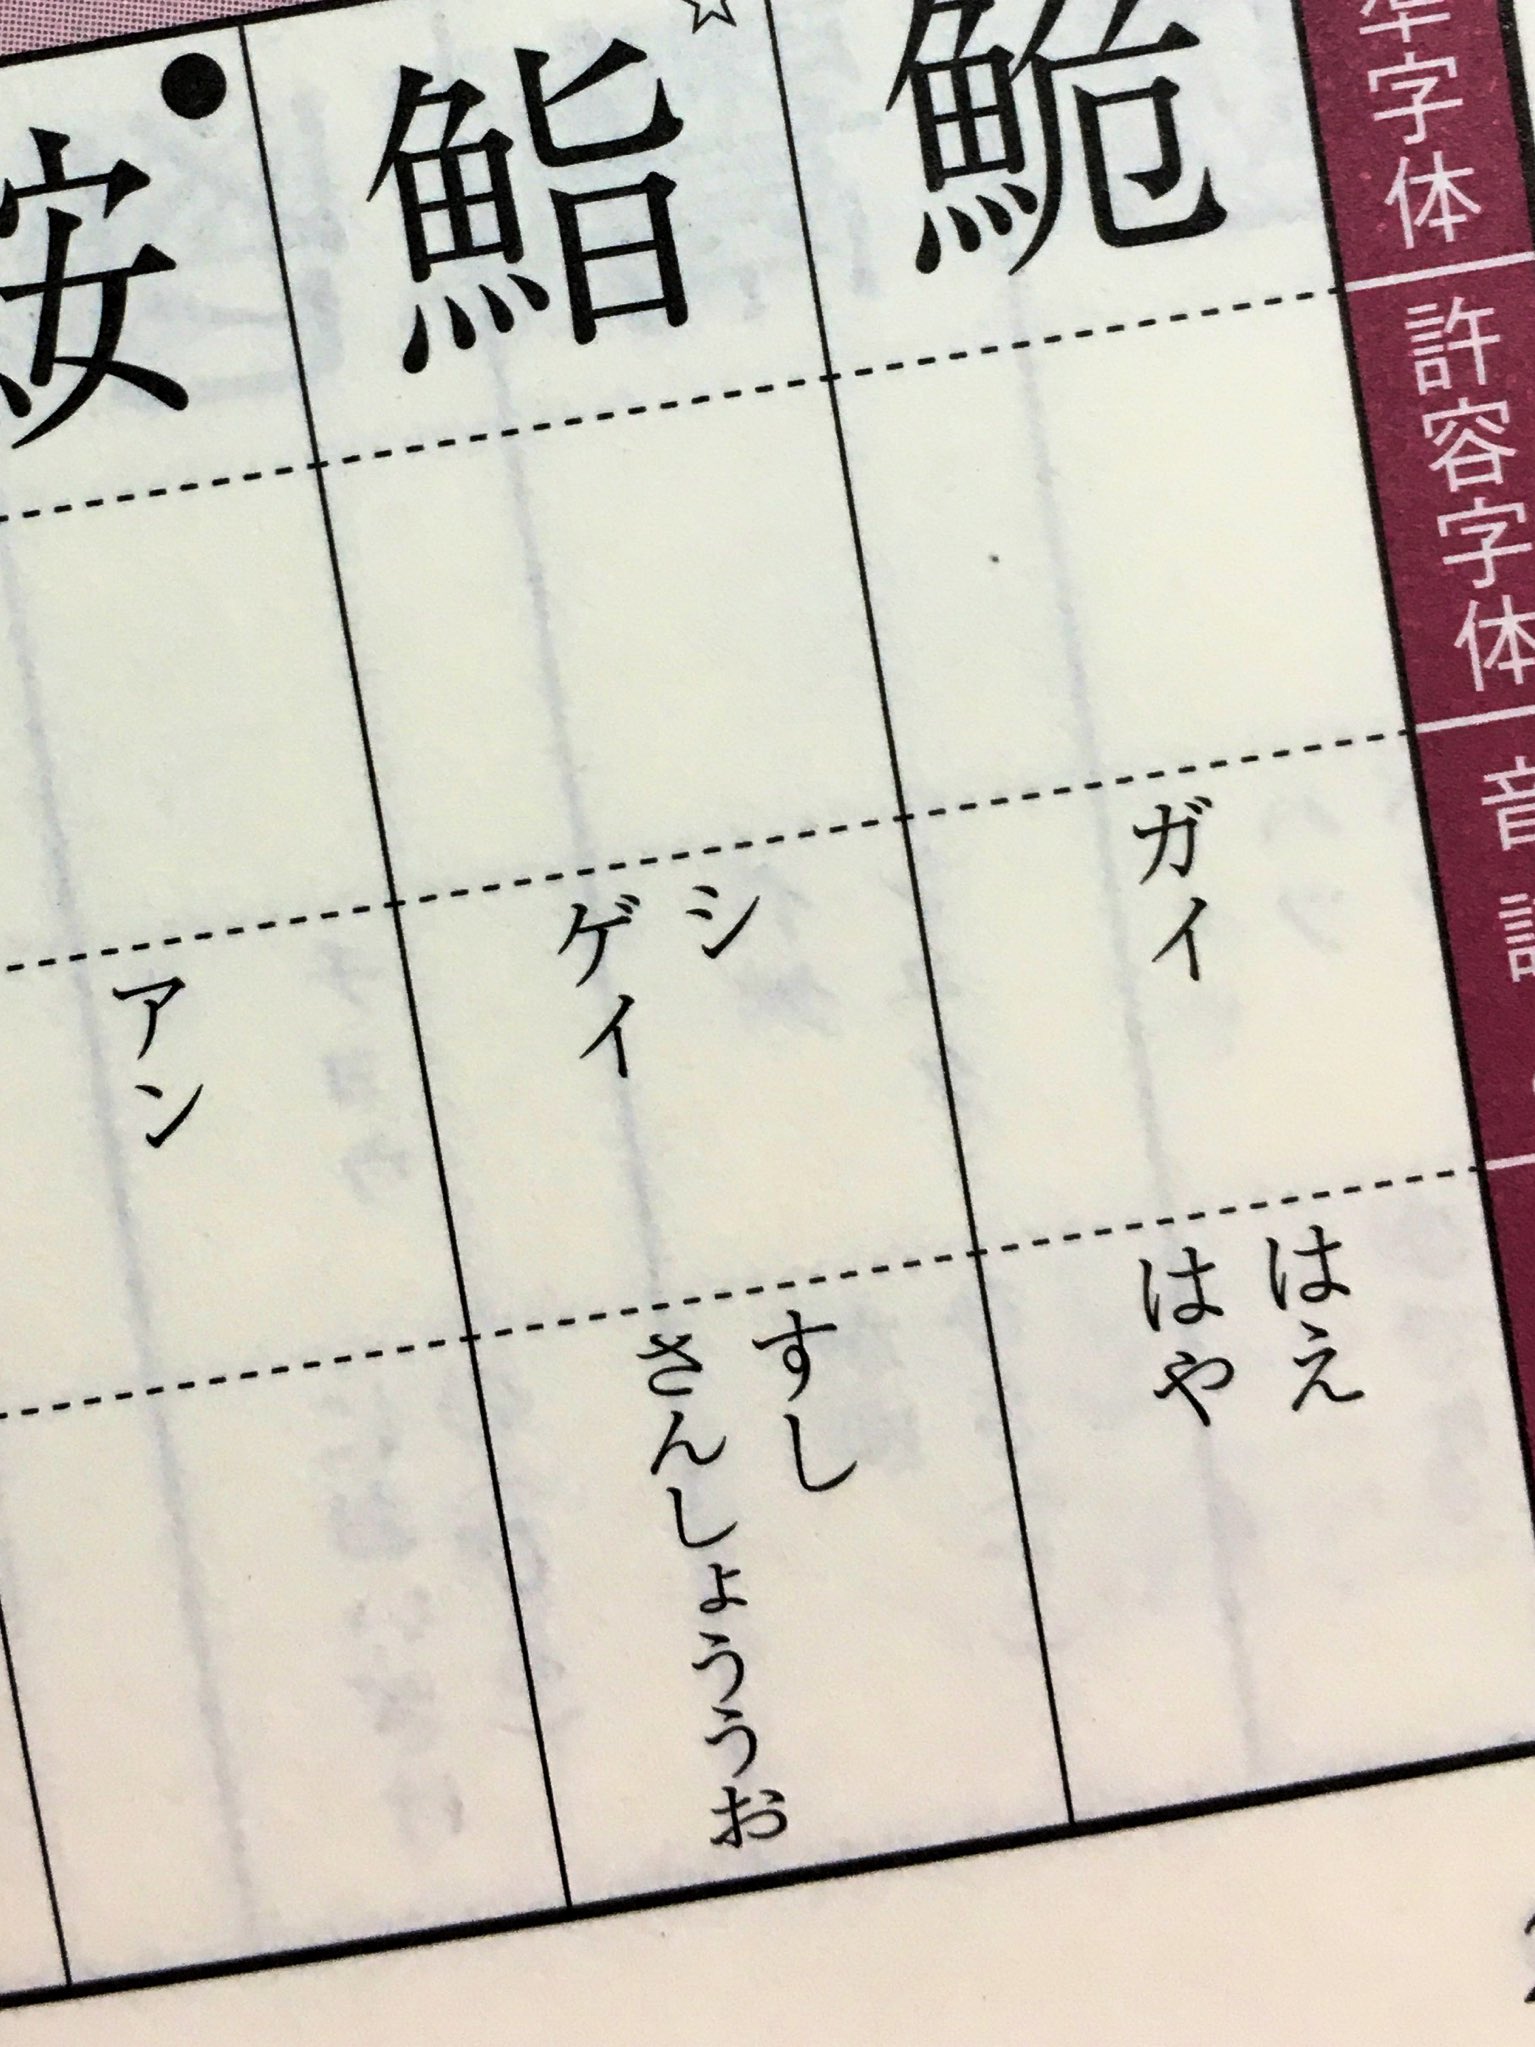 準字体
許容字体
音
鮠
ガイ
はえ
はや
☆
鮨
シ
ゲイ
すし
さんしょううお
●
鮟
アン